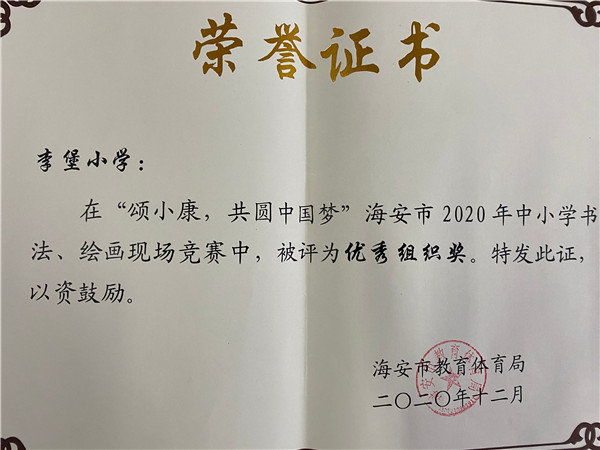 荣誉证书
李堡小学：
在“颂小康，共圆中国梦”海安市2020年中小学书
法、绘画现场竞赛中，被评为优秀组织奖。特发此证，
以资鼓励。
海安市教育体育局
二〇二〇年十二月